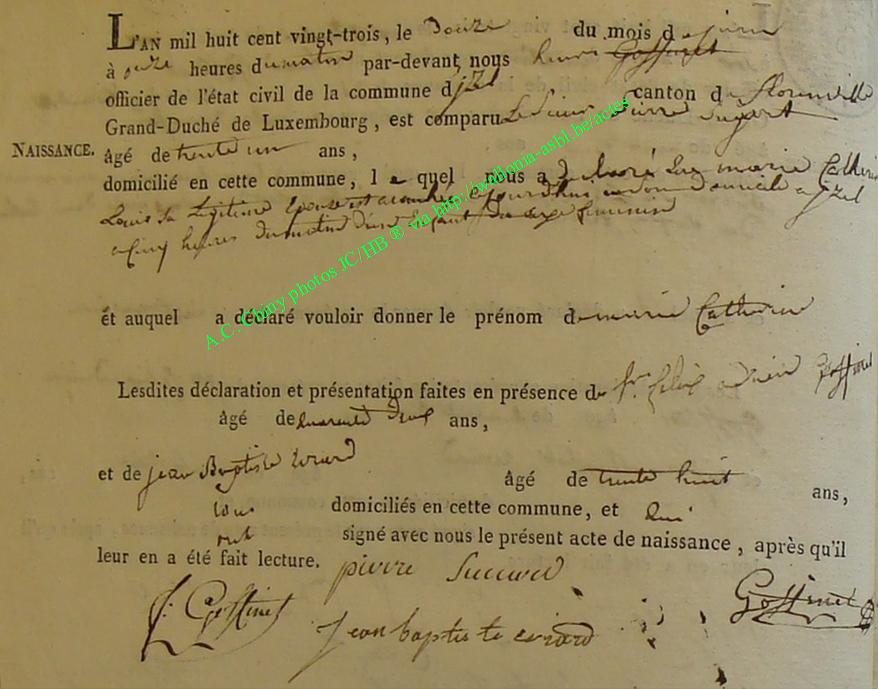 L'AN mil huit cent vingt-trois, le Douze du mois de juin
à onze heures du matin par-devant nous henri Goffinet
officier de l'état civil de la commune d'jzel canton de florenville
Grand-Duché de Luxembourg, est comparu Le Sieur Pierre
NAISSANCE. âgé de trente un ans,
domicilié en cette commune, le quel nous a déclaré que marie Catherine
Louis sa légitime Epouse est accouchée aujourdhui en son domicile a jzel
a Cinq heures du matin d'un Enfant du sexe feminin
et auquel a déclaré vouloir donner le prénom de marie Catherine
Lesdites déclaration et présentation faites en présence de adrien Goffinet
âgé de quarente deux ans,
et de jean Baptiste âgé de trente huit ans,
tous domiciliés en cette commune, et qui
ont signé avec nous le présent acte de naissance, après qu'il
leur en a été fait lecture.
pierre
Goffinet
Jean baptiste
Goffinet
A.C. Chiny photos IC/HB ® via http://wallonia-asbl.be/actes